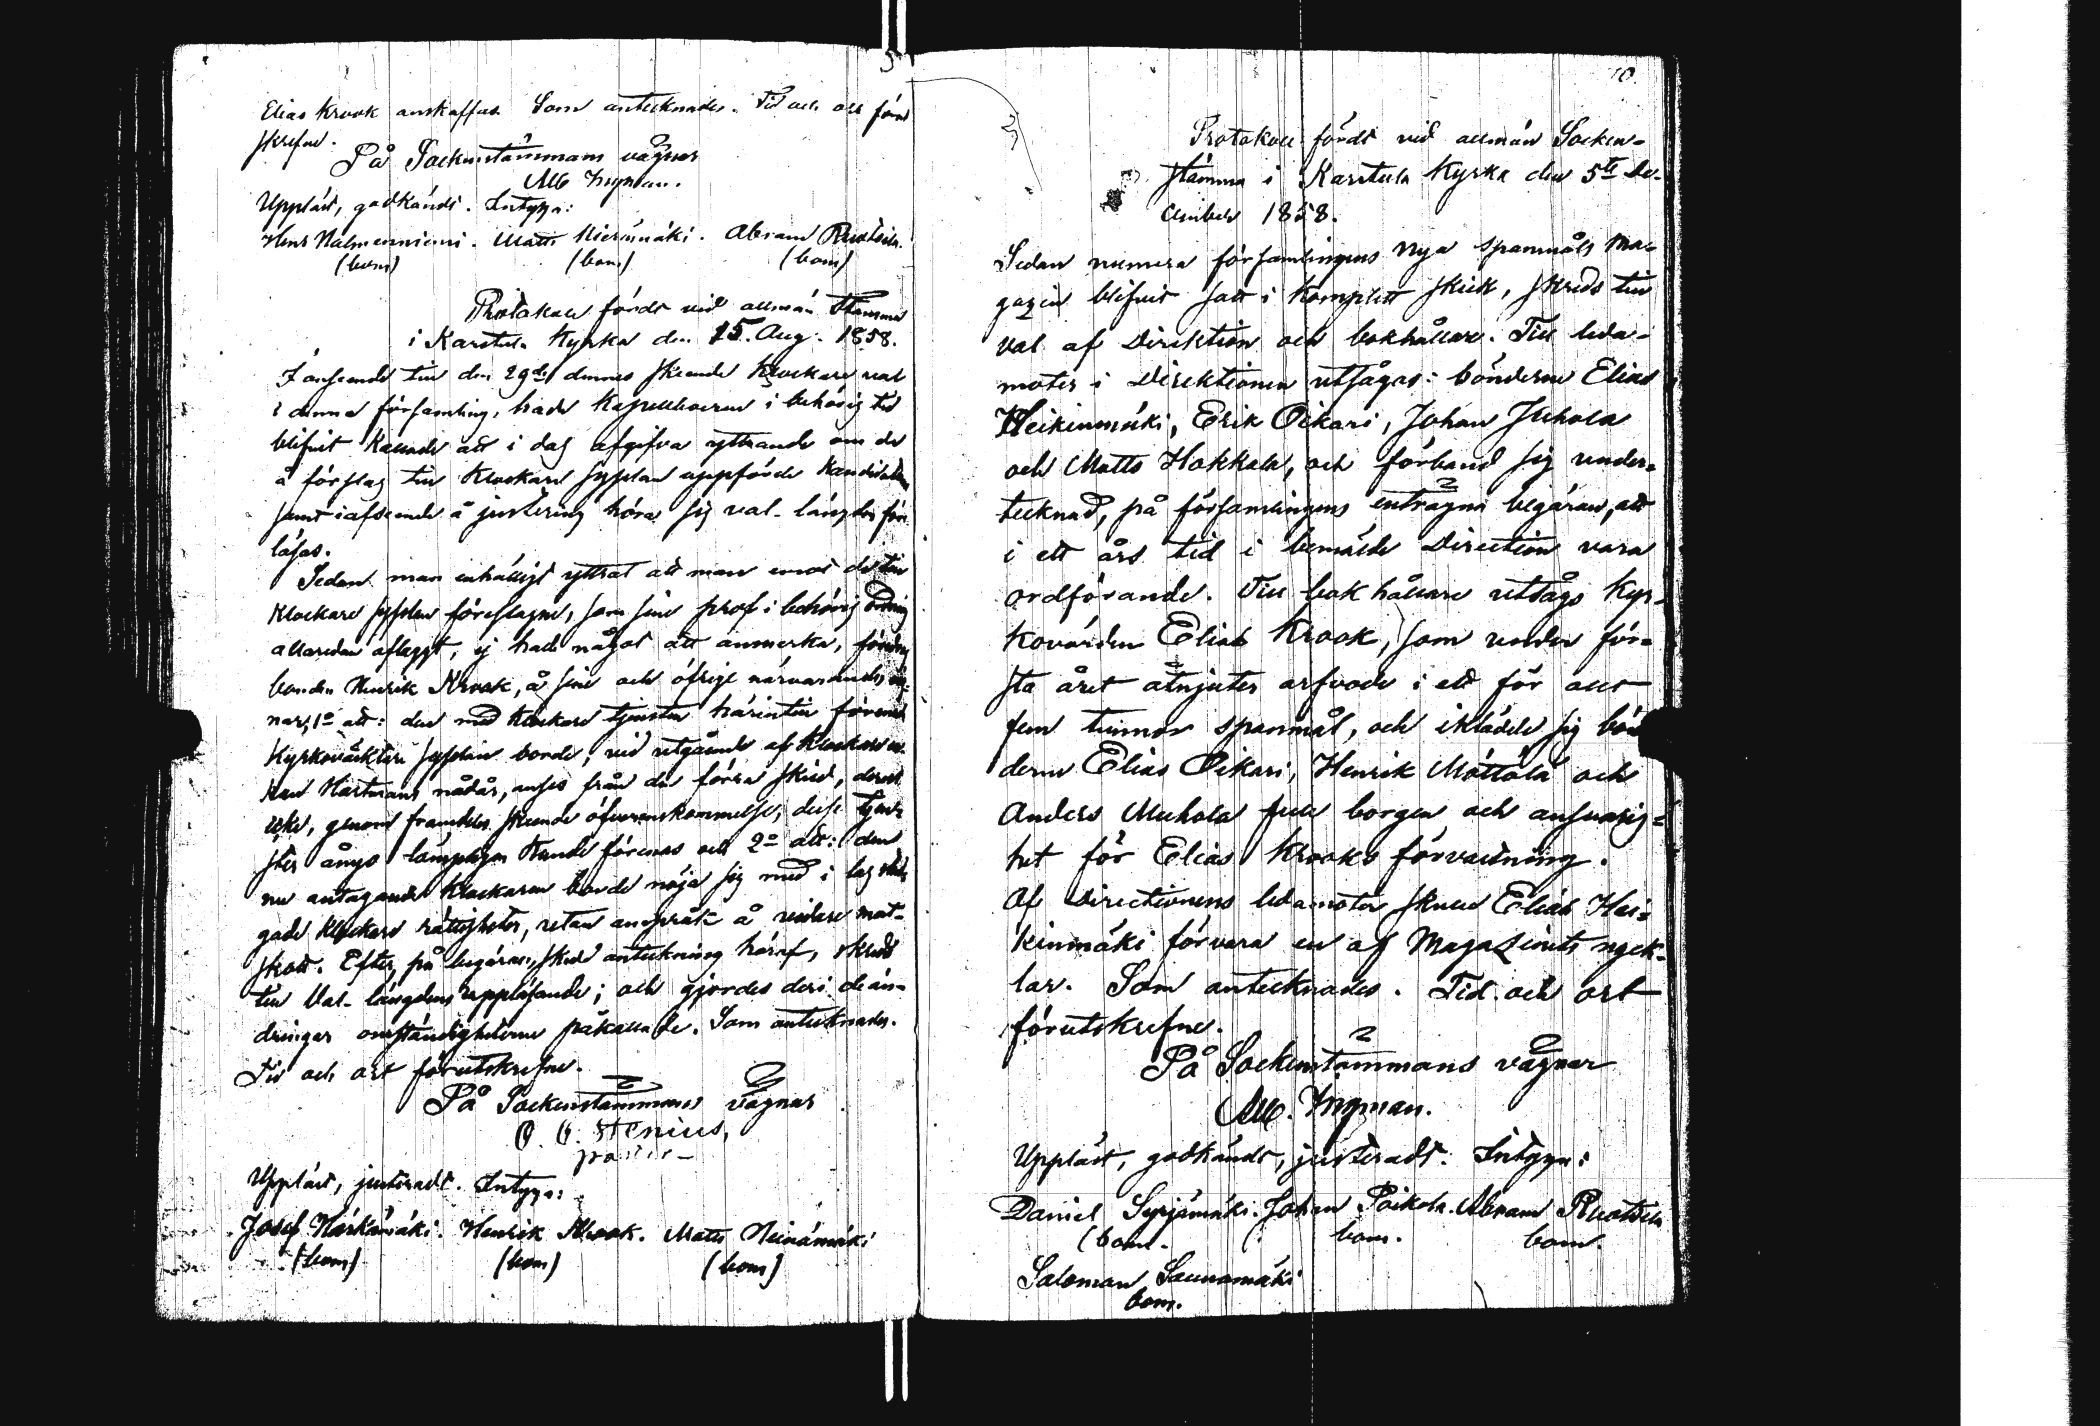 Elias Krook anskaffas. Som antecknades. Tid och ort förut
skrefne.
På Sockenstämmans vägnar
Alb Ingman.
Uppläst, godkändt. Intyga:
Henr Halmenniemi. Matts Hieronmäki. Abram Ruotsila.
(bom) (bom) (bom)
Protokoll fördt vid allmän Stämma
i Karstula Kyrka den 15. Aug. 1858.
I anseende till den 29de dennes skeende Klockare val
i denna församling, hade Kapellboerne i behörig tid
blifvit kallade att i dag afgifva yttrande om de
å förslag till Klockare sysslan uppförde Kandidater
samt i afseende å justering höra sig val-längden före
läsas.
Sedan man enhälligt yttrat att man emot de till
Klockare sysslan föreslagne, som sine prof i behörig ordning
allaredan aflaggt, ej hade något att anmerka,
bonden Henrik Krook, å sine och öfrige närvarandes väg-
nar, 1o att: den med Klockare tjensten härintill förenade
Kyrkoväktare sysslan borde, vid utgående af Klockare en-
kan Hartmans nådår, anses från den förra skild, derest
icke, genom framdeles skeende öfverenskommelse, desse tjen-
ster ånyo lämpligen kunde förenas och 2o att: den
nu antagande Klockaren borde nöja sig med i lag stad-
gade Klockare rättigheter, utan anspråk å vidare mat-
skott. Efter, på begäran, skedd anteckning häraf, skreds
till Val-längdens uppläsande; och gjordes deri de än-
dringar omständigheterne påkallade. Som antecknades.
Tid och ort förutskrefne.
På Sockenstämmans vägnar
O. G. Stenius,
Uppläst, justeradt. Intyga:
Josef Härkämäki. Henrik Krook. Matts Heinämäki
(bom) (bom) (bom)
10.
Protokoll fördt vid allmän Socken-
stämma i Karstula Kyrka den 5te De-
cember 1858.
Sedan numera församlingens nya spanmåls ma-
gazin blifvit satt i komplett skick, skreds till
val af Direktion och bokhållare. Till leda-
moter i Direktionen uttogas: bönderne Elias
Heikinmäki, Erik Oikari, Johan Juhola
och Matts Hokkala, och förband sig under-
tecknad, på församlingens enträgna begäran, att
i ett års tid i bemälde Direction vara
ordförande. Till bokhållare uttågs Kyr-
kovärden Elias Krook, som under för-
sta året åtnjuter arfvode i ett för allt
fem tunnor spanmål, och iklädde sig bön-
derne Elias Oikari, Henrik Möttölä och
Anders Muhola full borgen och ansvarig-
het för Elias Krooks förvaltning.
Af Directionens ledamoter skulle Elias Hei-
kinmäki förvara en af Magazinets nyck-
lar. Som antecknades. Tid och ort
förutskrefne.
På Sockenstämmans vägnar
Alb. Ingman.
Uppläst, godkändt, justeradt. Intyga:
Daniel Syrjämäki. Johan Poikola. Abram Ruotsila
(bom. bom. bom.
Saloman Saunamäki
bom.